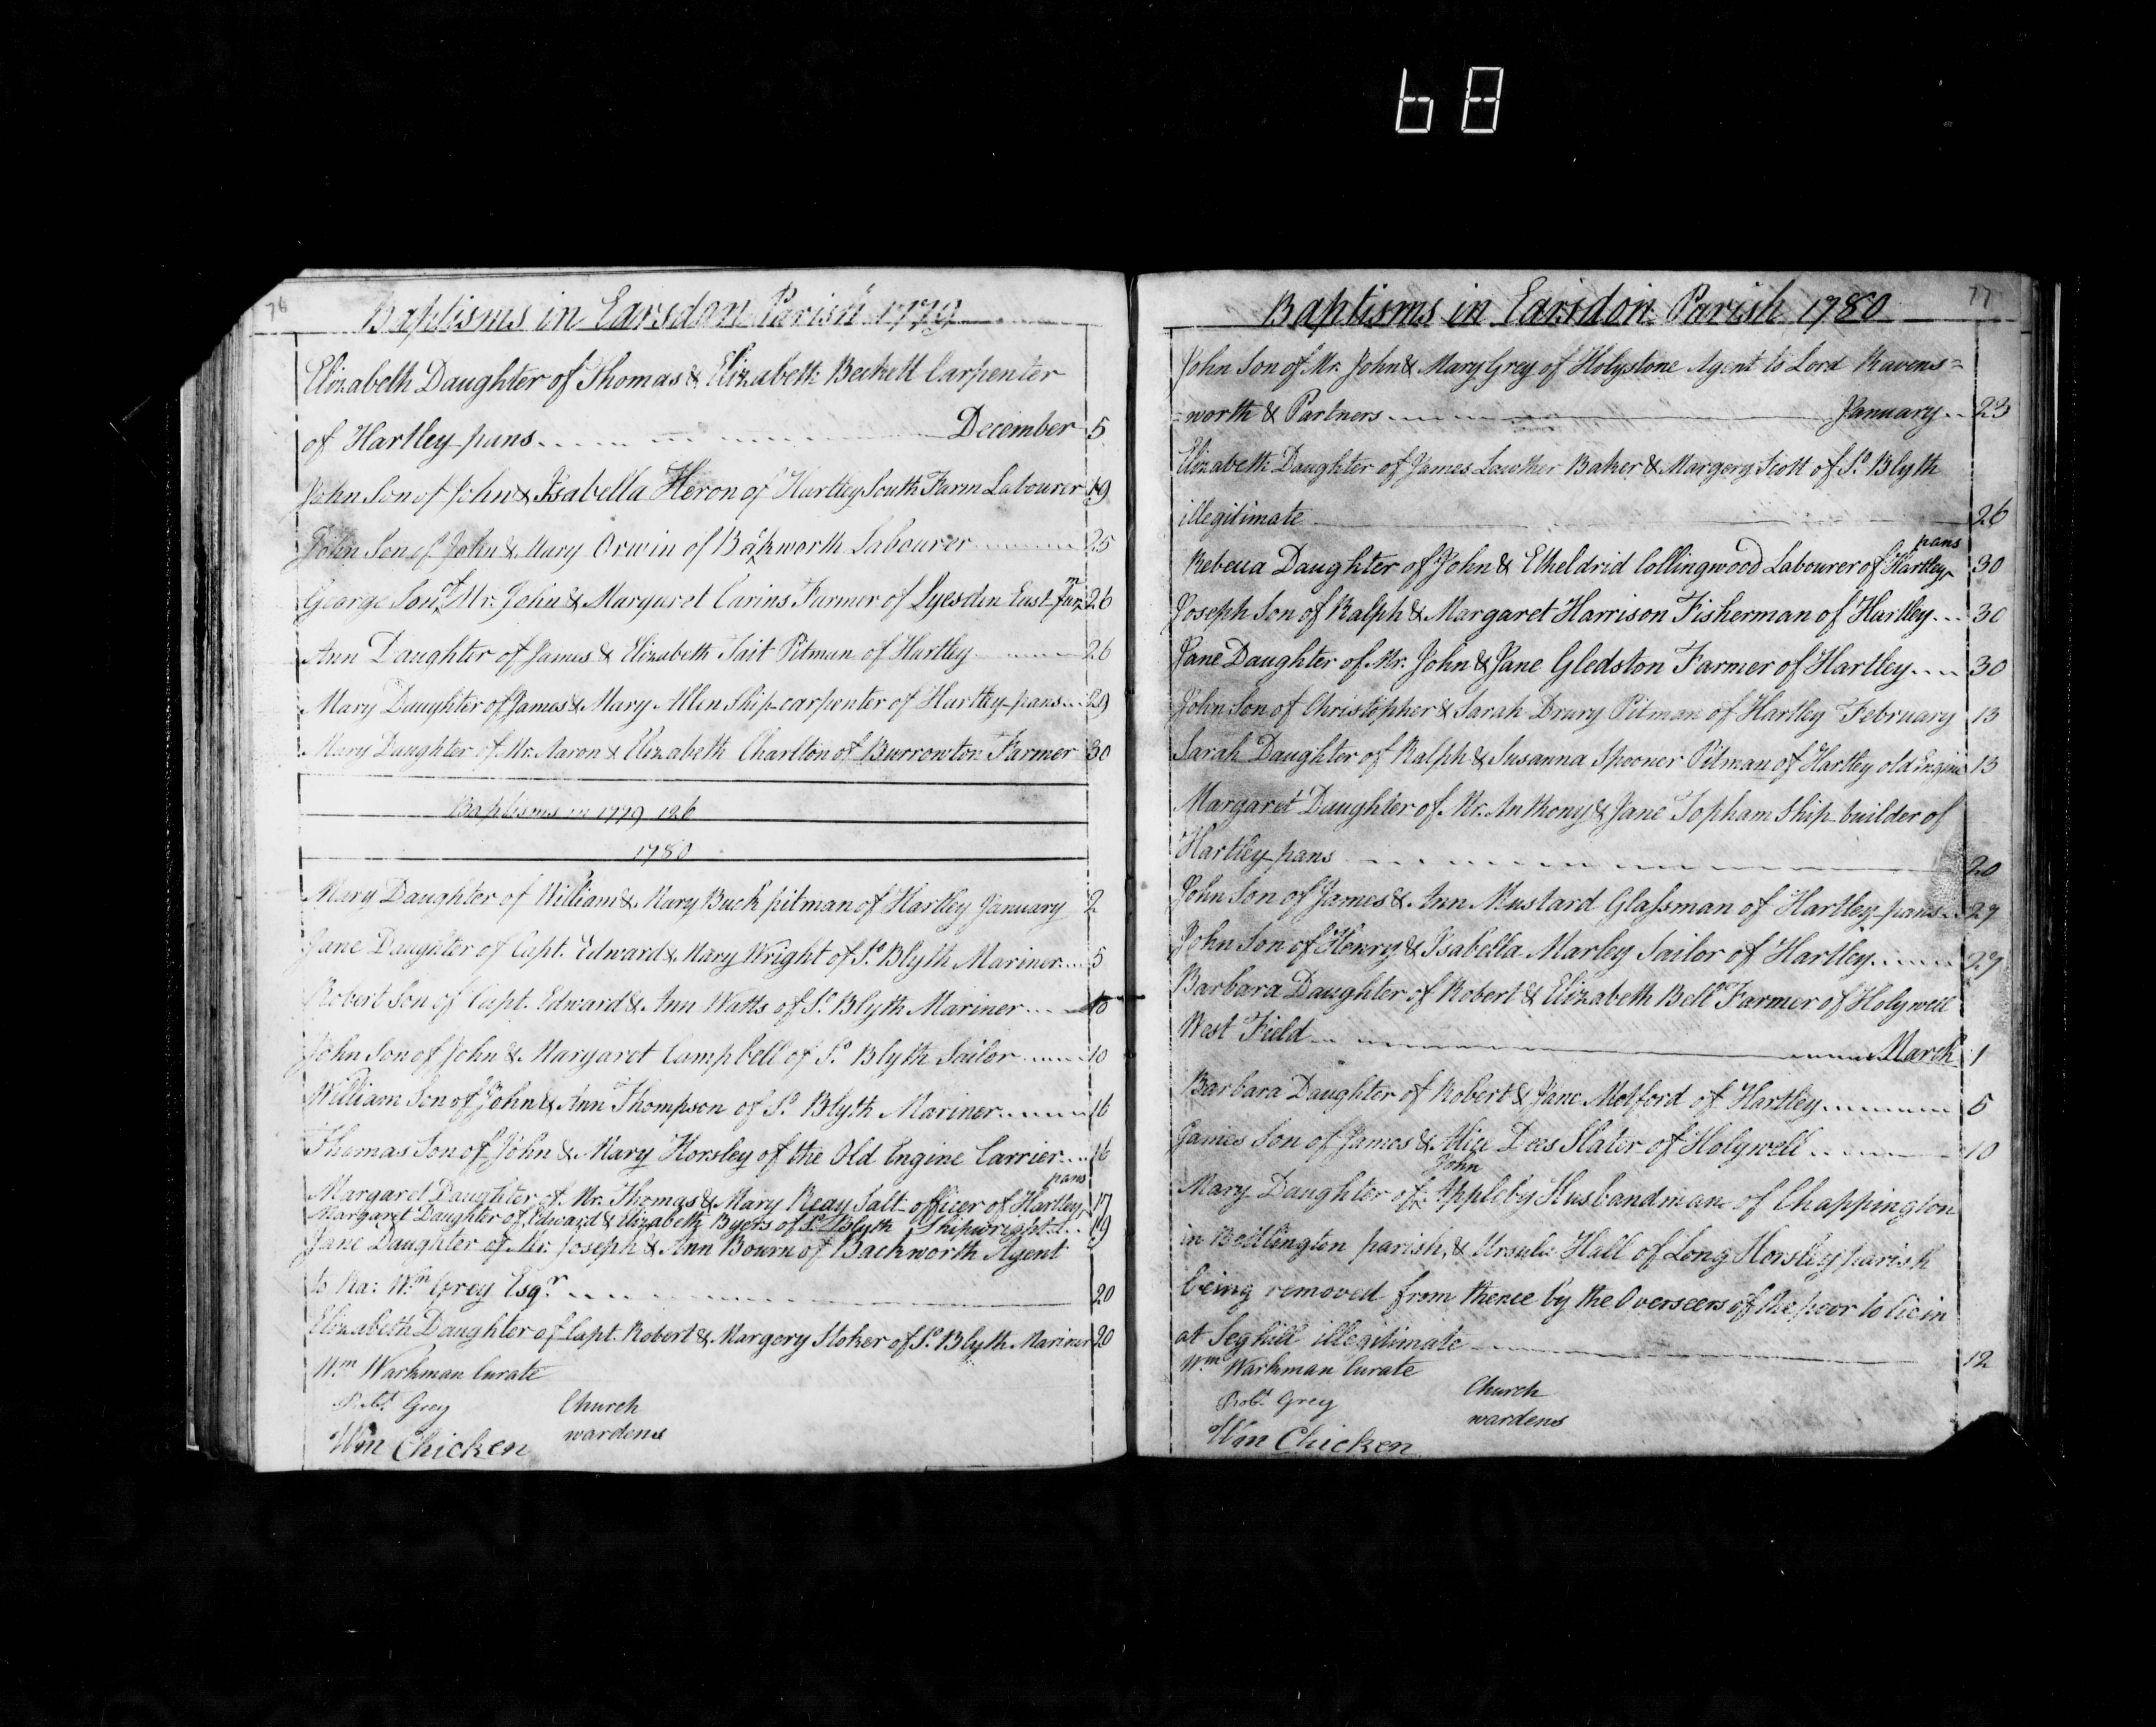 68
76
Baptisms in Earsdon Parish 1779
Elizabeth Daughter of Thomas & Elizabeth Beckett Carpenter
of Hartley-pans December 5
John Son of John & Isabella Heron of Hartley South Farm Labourer 19
John Son of John & Mary Orwin of Backworth Labourer 25
George Son of Mr. John & Margaret Carins Farmer of Lysden East farm 26
Ann Daughter of James & Elizabeth Tait Pitman of Hartley 26
Mary Daughter of James & Mary Allen Ship-carpenter of Hartley-pans 29
Mary Daughter of Mr. Aaron & Elizabeth Charlton of Burrowton Farmer 30
Baptisms in 1779 126
1780
Mary Daughter of William & Mary Buck pitman of Hartley January 2
Jane Daughter of Capt. Edward & Mary Wright of So. Blyth Mariner 5
Robert Son of Capt. Edward & Ann Watts of So. Blyth Mariner 10
John Son of John & Margaret Campbell of So. Blyth Sailor 10
William Son of John & Ann Thompson of So. Blyth Mariner 16
Thomas Son of John & Mary Horsley of the Old Engine Carrier 16
Margaret Daughter of Mr. Thomas & Mary Reay Salt-officer of Hartley pans 17
Margaret Daughter of Edward & Elizabeth Byers of So. Blyth Shipwright 19
Jane Daughter of Mr. Joseph & Ann Bourn of Backworth Agent
to Ra: Wm Grey Esqr. 20
Elizabeth Daughter of Capt. Robert & Margery Stoker of So. Blyth Mariner 20
Wm Warkman Curate
Robt. Grey Church
Wm Chicken wardens
77
Baptisms in Earsdon Parish 1780
John Son of Mr. John & Mary Grey of Holystone Agent to Lord Ravens=
=worth & Partners January 23
Elizabeth Daughter of James Lowther Baker & Margery Scott of So. Blyth
illegitimate 26
Rebecca Daughter of John & Etheldrid Collingwood Labourer of Hartley pans 30
Joseph Son of Ralph & Margaret Harrison Fisherman of Hartley 30
Jane Daughter of Mr. John & Jane Gledston Farmer of Hartley 30
John Son of Christopher & Sarah Drury Pitman of Hartley February 13
Sarah Daughter of Ralph & Susanna Spooner Pitman of Hartley old Engine 13
Margaret Daughter of Mr. Anthony & Jane Topham Ship-builder of
Hartley-pans 20
John Son of James & Ann Mustard Glassman of Hartley-pans 27
John Son of Henry & Isabella Marley Sailor of Hartley 27
Barbara Daughter of Robert & Elizabeth Bell Farmer of Holywell
West Field March 1
Barbara Daughter of Robert & Jane Motford of Hartley 5
James Son of James & Alice Dees Slater of Holywell 10
Mary Daughter of John Appleby Husbandman of Chappington
in Bedlington parish, & Ursula Hall of Long Horsley parish
being removed from thence by the Overseers of the poor to lie in
at Seghill illegitimate 12
Wm Warkman Curate
Robt. Grey Church
Wm Chicken wardens